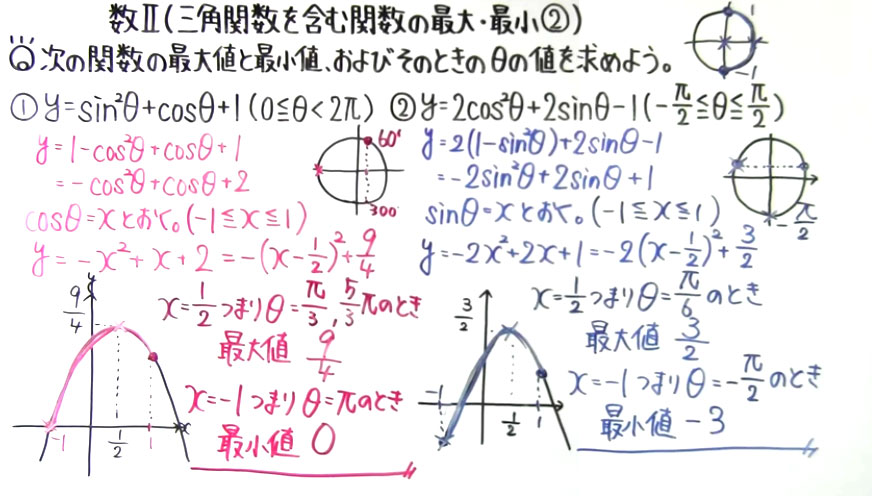 数Ⅱ(三角関数を含む関数の最大・最小②)
次の関数の最大値と最小値、およびそのときのθの値を求めよう。
1
-1
① y=sin²θ+cosθ+1 (0≦θ<2π)
y=1-cos²θ+cosθ+1
=-cos²θ+cosθ+2
60°
300°
cosθ=xとおく。(-1≦x≦1)
y=-x²+x+2=-(x-1/2)²+9/4
y
9/4
-1
1/2
1
x
x=1/2つまりθ=π/3, 5/3πのとき
最大値 9/4
x=-1つまりθ=πのとき
最小値 0
② y=2cos²θ+2sinθ-1 (-π/2≦θ≦π/2)
y=2(1-sin²θ)+2sinθ-1
=-2sin²θ+2sinθ+1
-π/2
sinθ=xとおく。(-1≦x≦1)
y=-2x²+2x+1=-2(x-1/2)²+3/2
3/2
-1
1/2
1
x=1/2つまりθ=π/6のとき
最大値 3/2
x=-1つまりθ=-π/2のとき
最小値 -3